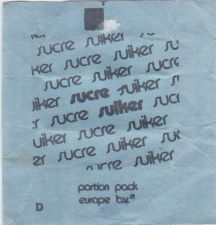 ker sucre suiker
sucre suiker
ker sucre suiker su
sucre suiker sucr
uiker sucre suiker
sucre suiker sucr
uiker sucre suiker
sucre suiker
ucre suiker
portion pack
europe b.v.
D